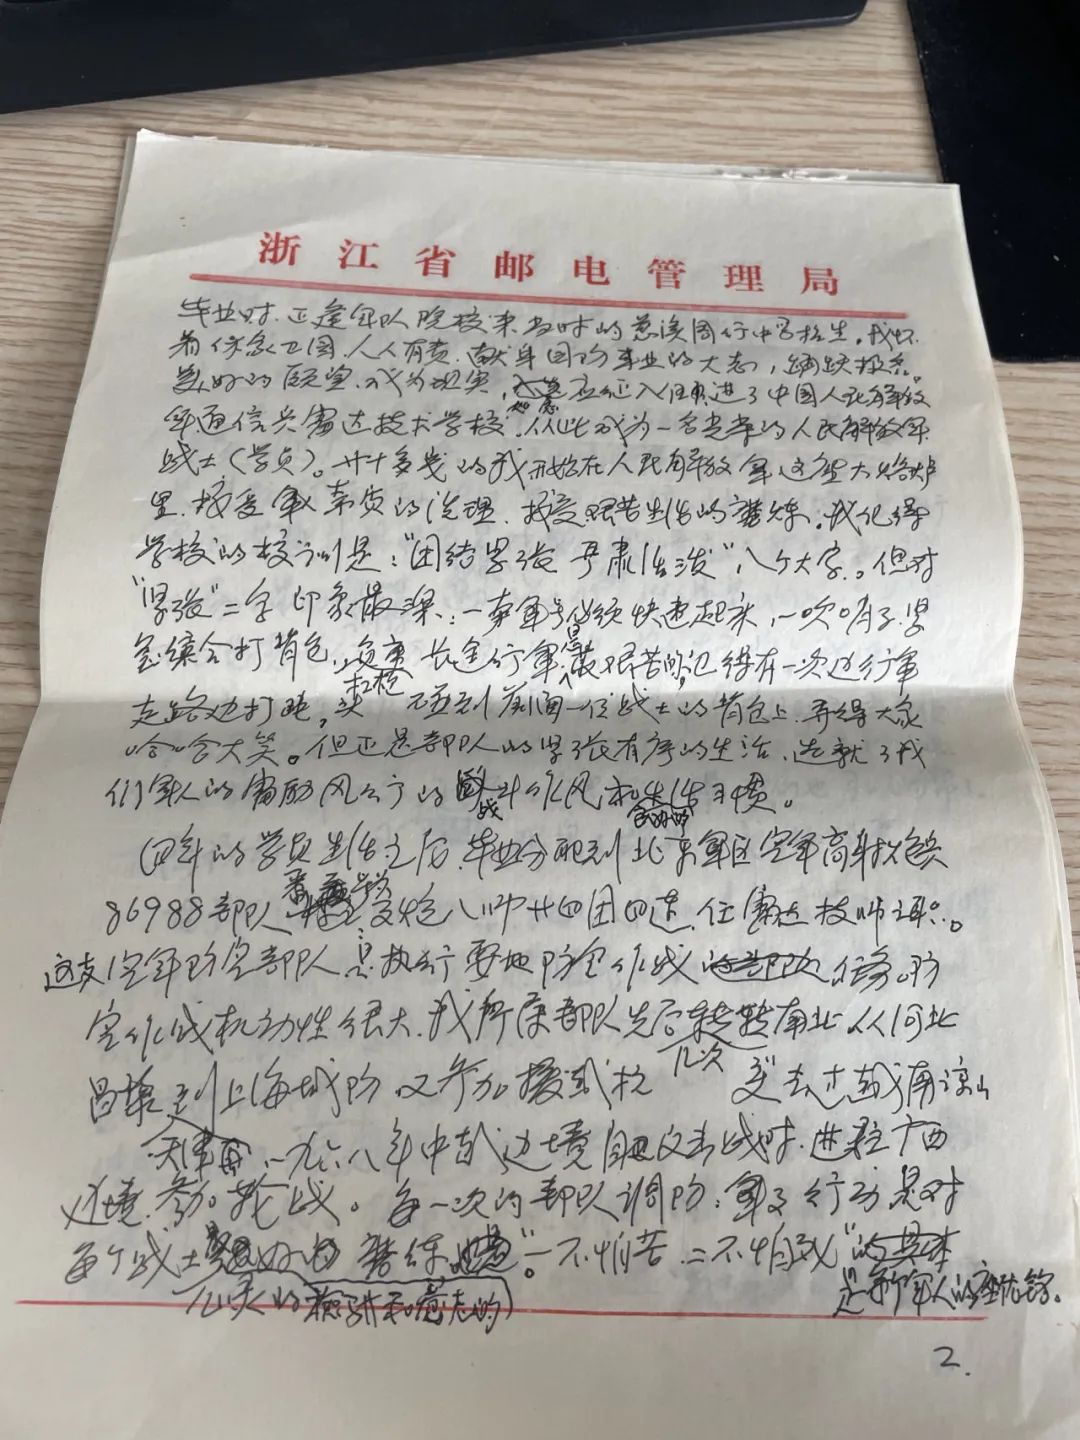 浙江省邮电管理局
毕业时,正逢军队院校来当时的慈溪周行中学招生。我怀
着保家卫国、人人有责、献身国防事业的大志,踊跃报名。
美好的愿望成为现实,如意应征入伍进了中国人民解放
军通信兵雷达技术学校,从此成为一名光荣的人民解放军
战士(学员)。廿十多岁的我开始在人民解放军这座大熔炉
里,接受军事素质的洗理,接受艰苦生活的磨炼。我记得
学校的校训是:“团结紧张 严肃活泼”八个大字。但对
“紧张”二字印象最深:一奏军号必须快速起床,一吹哨子紧
急集合打背包,负重扛枪长途行军是最艰苦的,记得有一次边行军
走路边打瞌,头碰到前面一位战士的背包上,弄得大家
哈哈大笑。但正是部队的紧张有序的生活,造就了我
们军人的雷励风行的战斗作风和良好的生活习惯。
四年的学员生活之后,毕业分配到北京军区空军高射炮兵
86988部队 高炮八师廿四团四连,任雷达技师
这支空军防空部队是执行要地防空作战任务,防
空作战机动性很大,我所属部队先后几次转南北,从河北
昌黎到上海城防,又参加援越抗 去过越南谅山
天津 一九六八年中越边境自卫反击战时,进驻广西
边境参加轮战。每一次的部队调防,军事行动是对
每个战士 磨练。“一不怕苦、二不怕死”
是我军人的座右铭。
2.